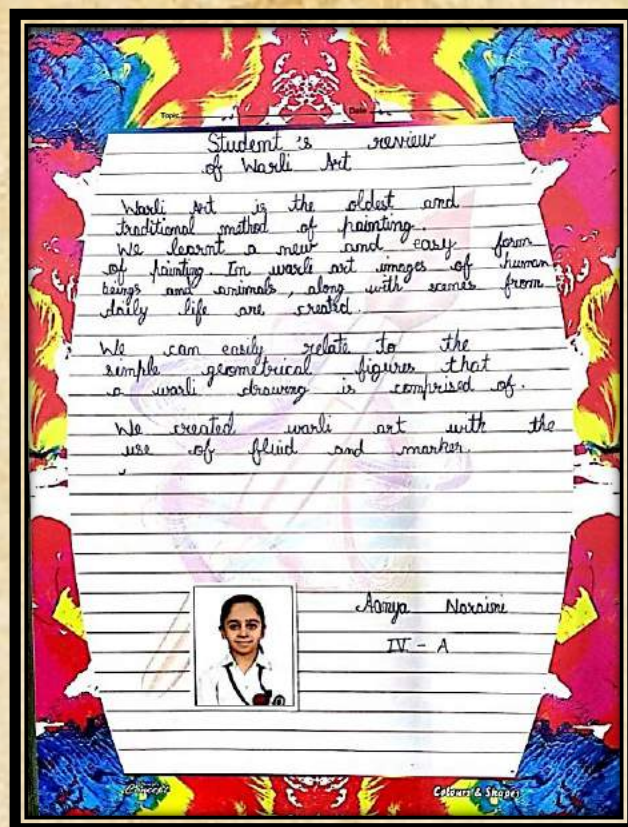 Topic Date
Student's review
of Warli Art
Warli Art is the oldest and
traditional method of painting.
We learnt a new and easy form
of painting. In warli art images of human
beings and animals, along with scenes from
daily life are created.
We can easily relate to the
simple geometrical figures that
a warli drawing is comprised of.
We created warli art with the
use of fluid and marker.
Aanya Naraini
IV - A
Concept Colours & Shapes